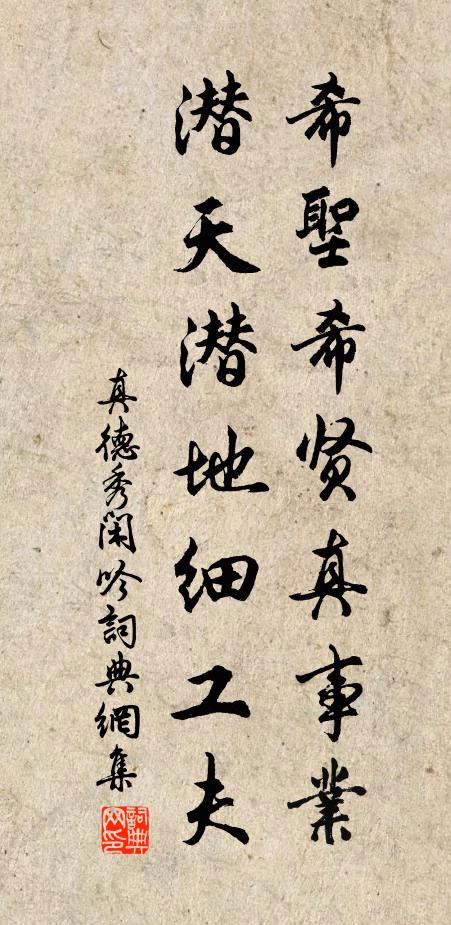 希聖希贤真事業
潜天潜地细工夫
真德秀閑吟詞典網集
詞典网印